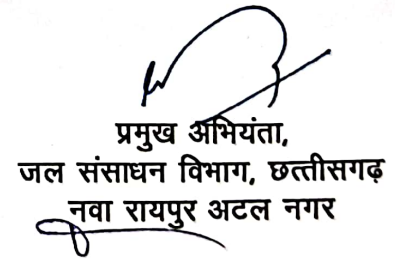 प्रमुख अभियंता,
जल संसाधन विभाग, छत्तीसगढ़
नवा रायपुर अटल नगर